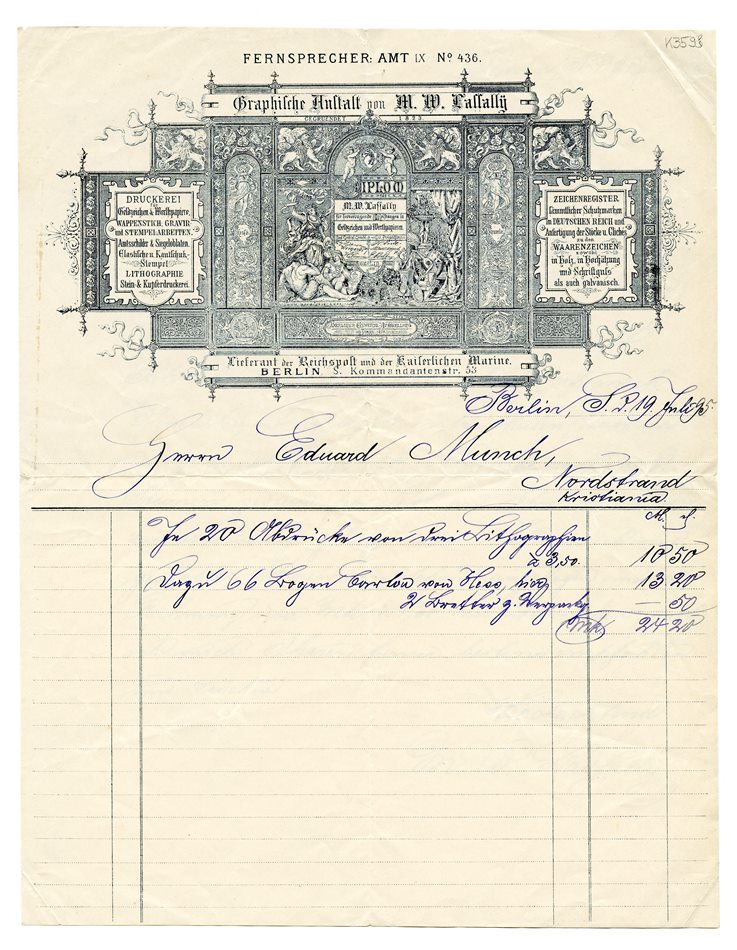 K3598
FERNSPRECHER: AMT IX Nº 436.
Graphische Anstalt von M. W. Lassally
GEGRUENDET 1833
DRUCKEREI
von
Geldzeichen & Werthpapiere.
WAPPENSTICH, GRAVIR-
und STEMPELARBEITEN.
Amtsschilder & Siegeloblaten.
Elastische u. Kautschuk-
Stempel
LITHOGRAPHIE
Stein & Kupferdruckerei.
DIPLOM
M. W. Lassally
für hervorragende Leistungen in
Geldzeichen und Werthpapieren.
ZEICHENREGISTER
sammtlicher Schutzmarken
im DEUTSCHEN REICH und
Anfertigung der Stöcke u. Clichés
zu den
WAARENZEICHEN
sowohl
in Holz, in Hochätzung
und Schriftguss
als auch galvanisch.
Lieferant der Reichspost und der Kaiserlichen Marine.
BERLIN S. Kommandantenstr. 53
Berlin, S. d. 19 Juli 95.
Herrn Eduard Munch,
Nordstrand
Kristiania
M. d.
Je 20 Abdrücke von drei Lithographien
à 3,50. 10 50
Dazu 66 Bogen Carton von Hess, 13 20
2 Bretter z. Verpackg. — 50
Mk 24 20